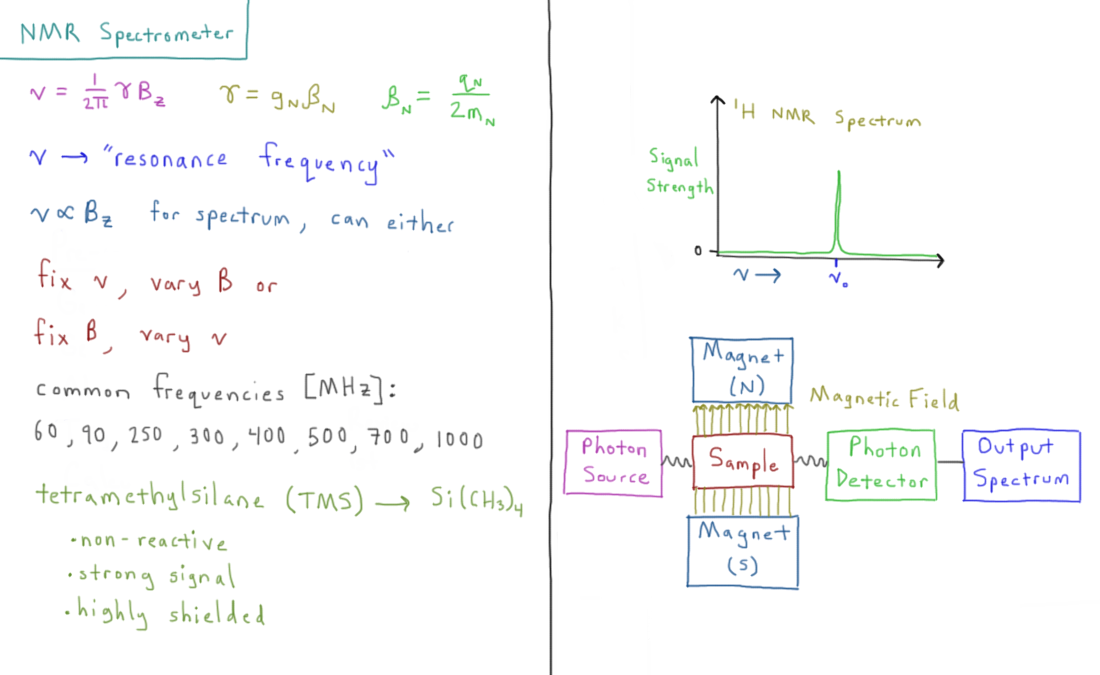 NMR Spectrometer
ν = 1/2π γ B_z    γ = g_N β_N    β_N = q_N / 2m_N
ν → "resonance frequency"
ν ∝ B_z for spectrum, can either
fix ν, vary B or
fix B, vary ν
common frequencies [MHz]:
60, 90, 250, 300, 400, 500, 700, 1000
tetramethylsilane (TMS) → Si(CH₃)₄
• non-reactive
• strong signal
• highly shielded
¹H NMR Spectrum
Signal
Strength
0
ν →
ν₀
Magnet
(N)
Magnetic Field
Photon
Source
Sample
Photon
Detector
Output
Spectrum
Magnet
(S)